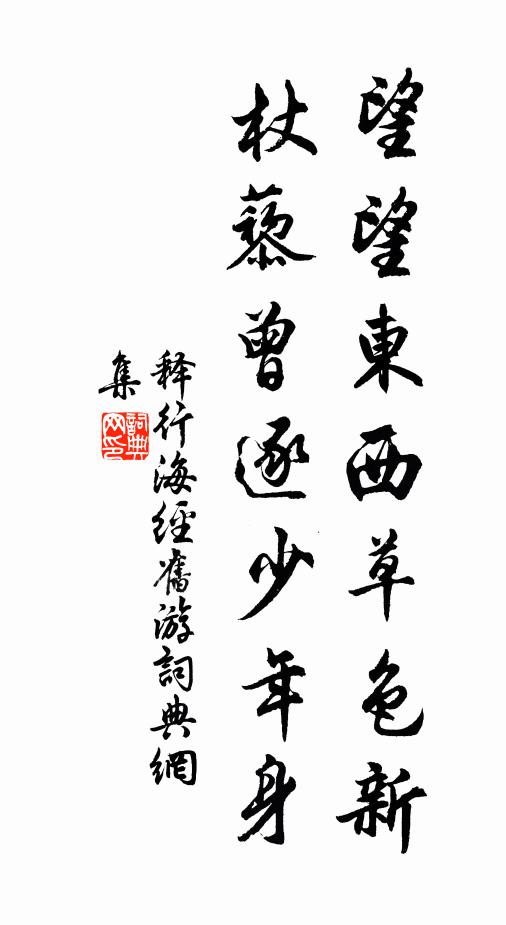 望望東西草色新
杖藜曾逐少年身
释行海經舊游詞典網
集
詞典
网印